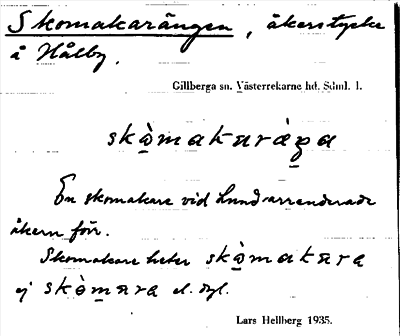 Skomakarängen, åkerstycke
å Hålby.
Gillberga sn. Västerrekarne hd. Sdml. l.
skò̠makarä̀ŋa
En skomakare vid Lund arrenderade
åkern förr.
Skomakare heter skò̠makara
ej skò̠mara el. dyl.
Lars Hellberg 1935.